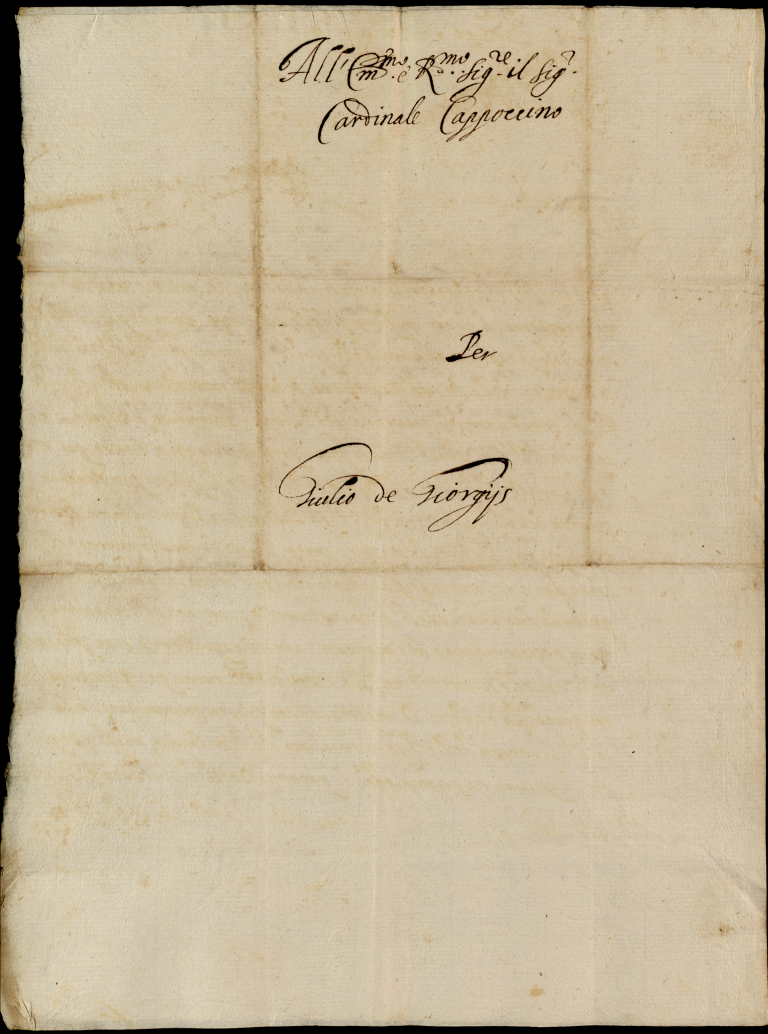 All' Em.mo e R.mo Sig.re il Sig.r
Cardinale Cappoccino
Per
Giulio de Giorgijs